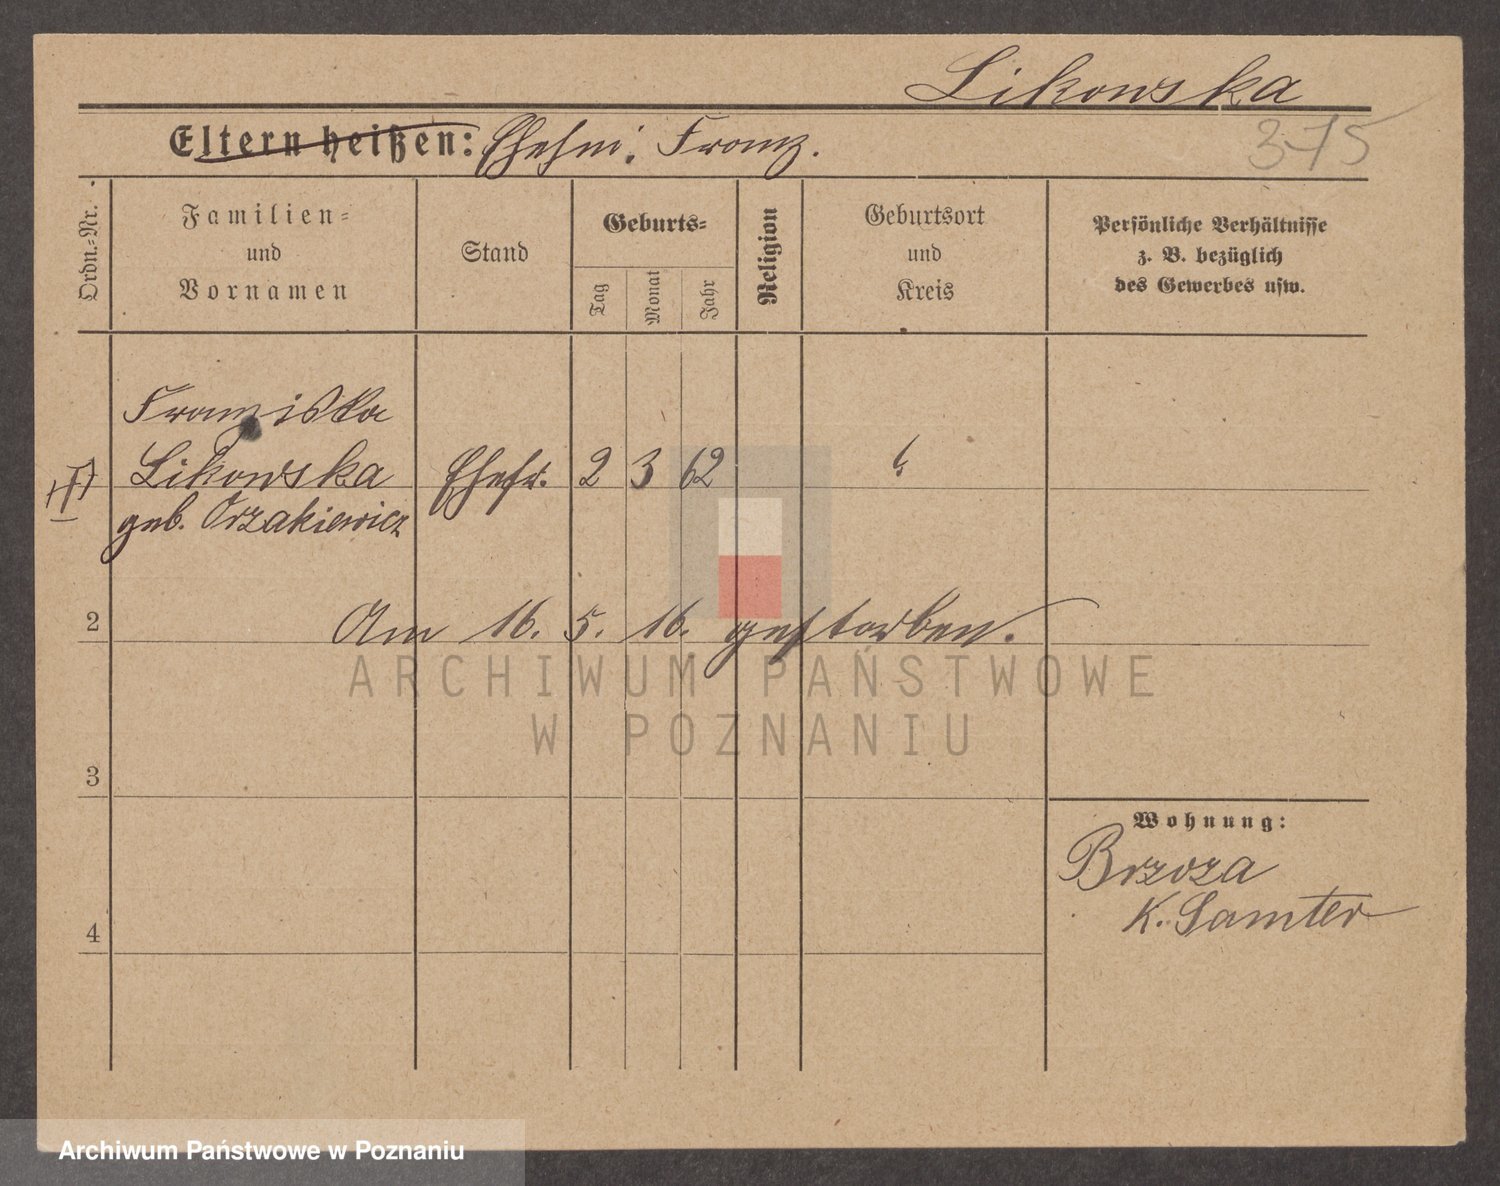 Likowska
375
Eltern heißen: Ehem. Franz.
Ordn.-Nr.
Familien-
und
Vornamen
Stand
Geburts-
Tag
Monat
Jahr
Religion
Geburtsort
und
Kreis
Persönliche Verhältnisse
z. B. bezüglich
des Gewerbes usw.
Franziska
Likowska Ehefr. 2 3 62
geb. Orzakiewicz
2
Am 16. 5. 16. gestorben.
ARCHIWUM PAŃSTWOWE
W POZNANIU
3
Wohnung:
Brzoza
K. Samter
4
Archiwum Państwowe w Poznaniu